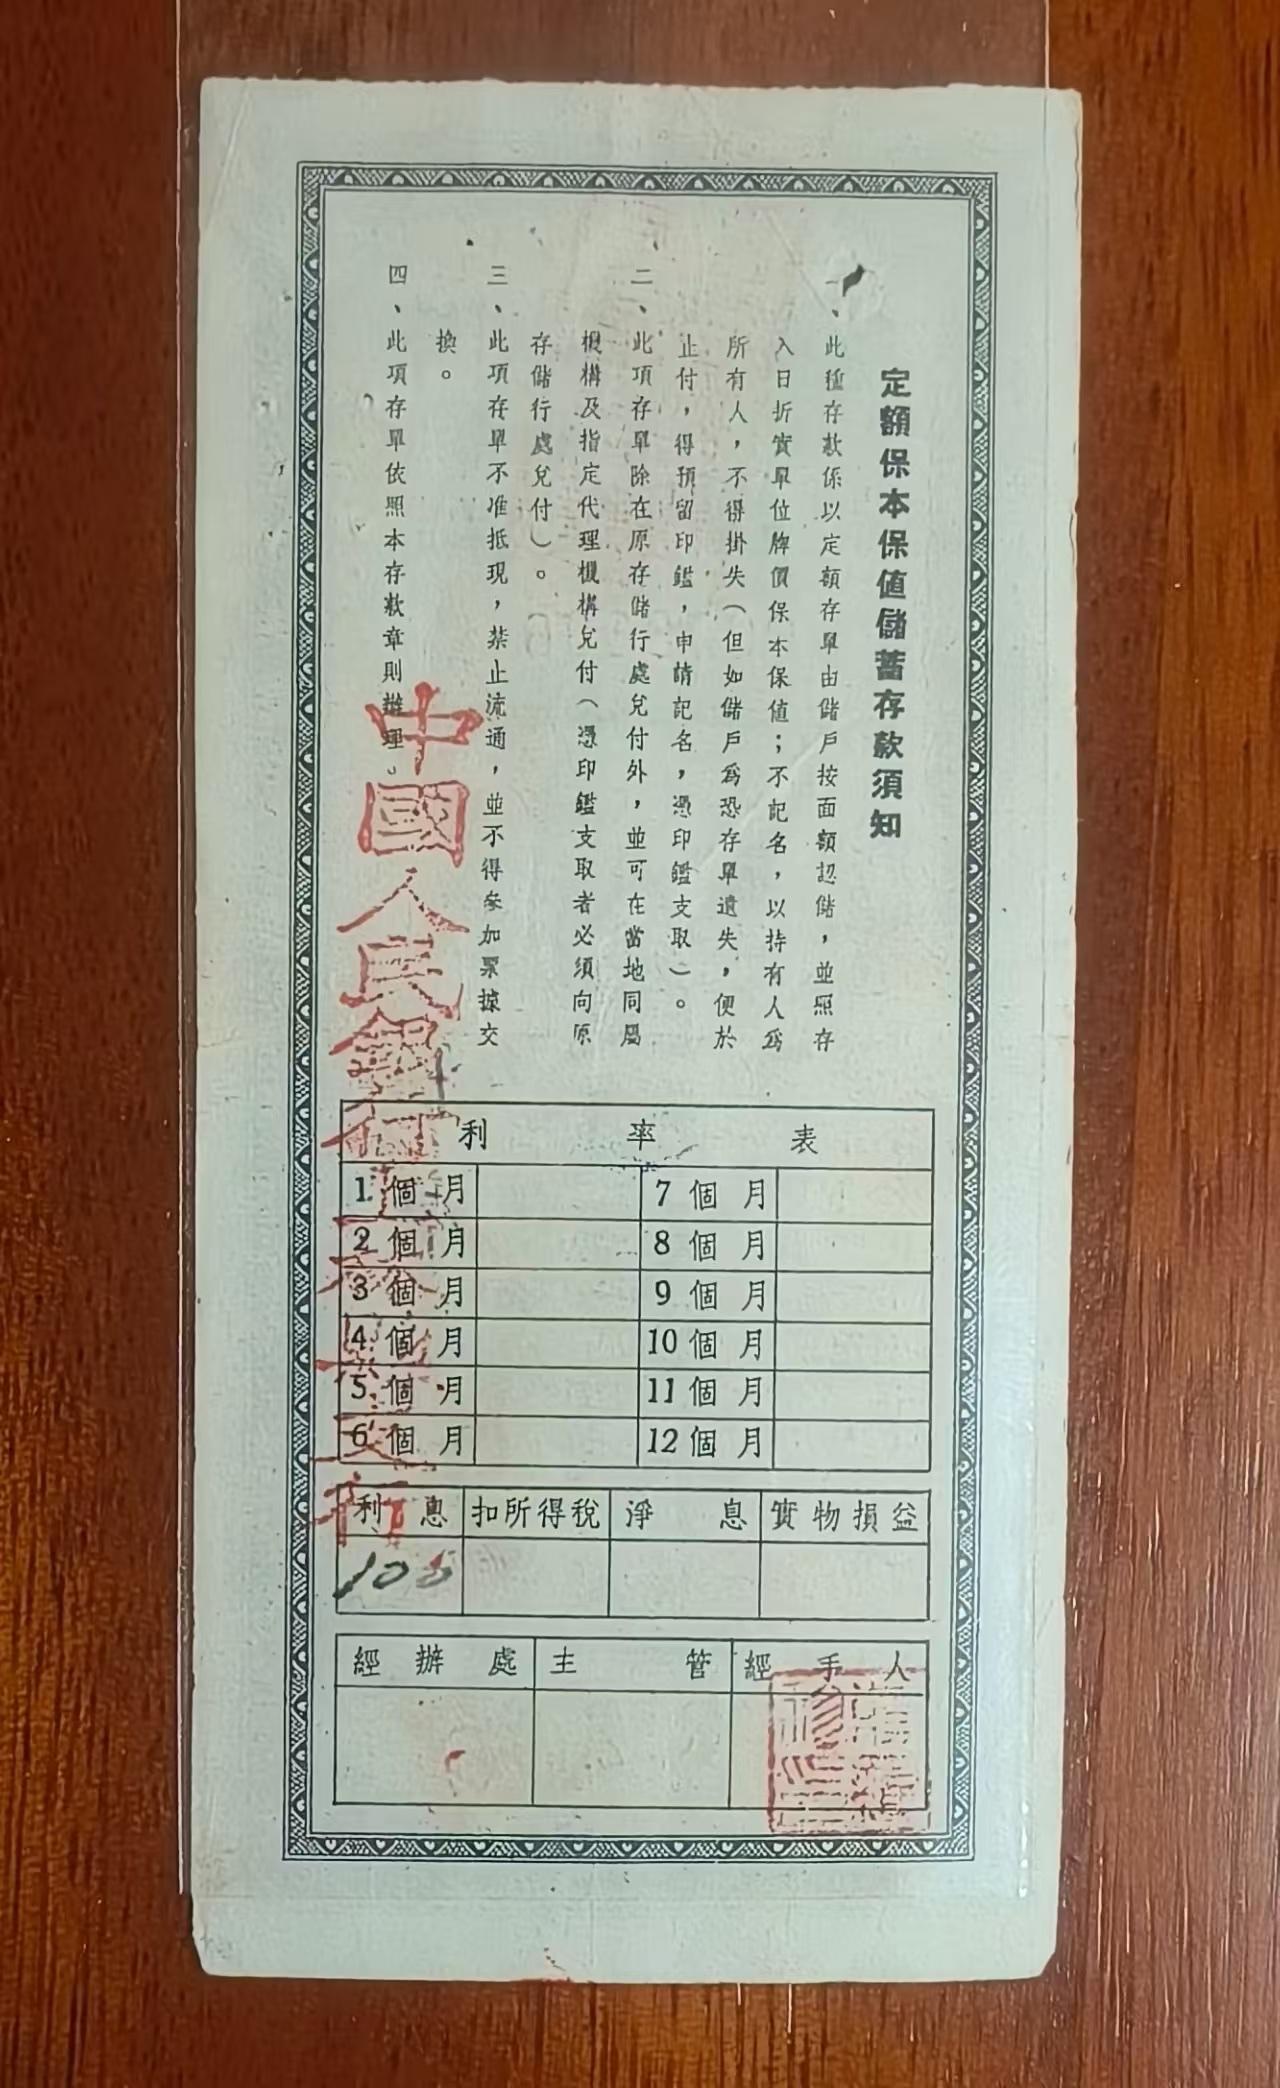 定額保本保値儲蓄存款須知
一、此種存款係以定額存單由儲戶按面額認儲，並照存
入日折實單位牌價保本保値；不記名，以持有人爲
所有人，不得掛失（但如儲戶爲恐存單遺失，便於
止付，得預留印鑑，申請記名，憑印鑑支取）。
二、此項存單除在原存儲行處兌付外，並可在當地同屬
機構及指定代理機構兌付（憑印鑑支取者必須向原
存儲行處兌付）。
三、此項存單不准抵現，禁止流通，並不得參加票據交
換。
四、此項存單依照本存款章則辦理。
中國人民銀行
利率表
1 個月 7 個月
2 個月 8 個月
3 個月 9 個月
4 個月 10 個月
5 個月 11 個月
6 個月 12 個月
利息 扣所得稅 淨息 實物損益
經辦處 主管 經手人